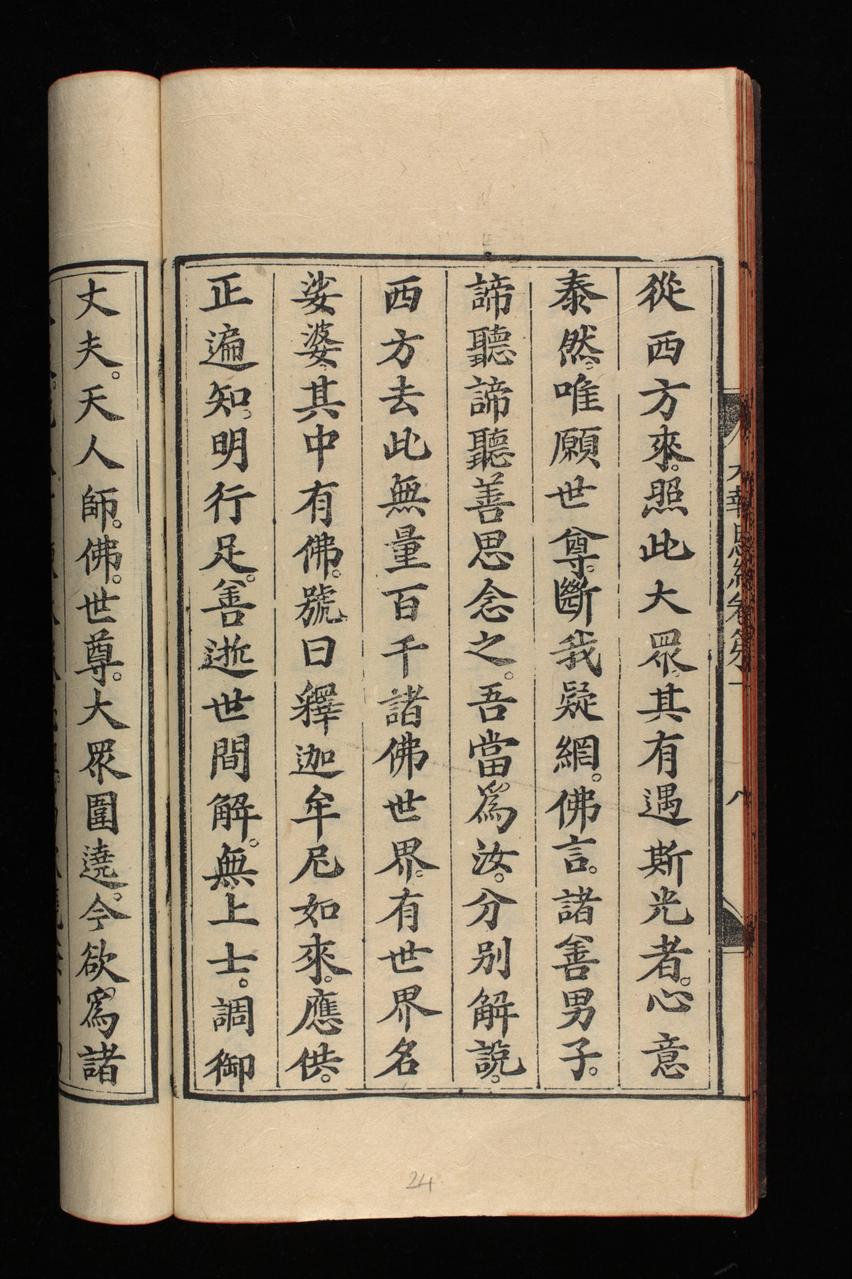 從西方來。照此大眾。其有遇斯光者。心意
泰然。唯願世尊。斷我疑網。佛言。諸善男子。
諦聽諦聽善思念之。吾當為汝。分別解說。
西方去此無量百千諸佛世界。有世界名
娑婆。其中有佛。號曰釋迦牟尼如來。應供。
正遍知。明行足。善逝世間解。無上士。調御
丈夫。天人師。佛。世尊。大眾圍遶。今欲為諸
24